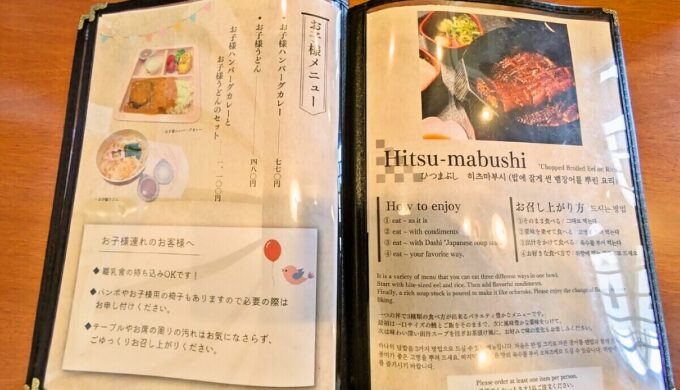 お子様メニュー
お子様ハンバーグカレー 七七〇円
• お子様うどん 四八〇円
お子様ハンバーグカレーと
お子様うどんのセット 一、一〇〇円
お子様連れのお客様へ
◆離乳食の持ち込みOKです！
◆バンボやお子様用の椅子もありますので必要の際は
お申し付けください。
◆テーブルやお席の周りの汚れはお気になさらず、
ごゆっくりお召し上がりください。
Hitsu-mabushi
"Chopped Broiled Eel on Rice
ひつまぶし 히츠마부시 (밥에 잘게 썬 뱀장어를 뿌린 요리)
How to enjoy
① eat – as it is
② eat – with condiments
③ eat – with Dashi "Japanese soup
④ eat – your favorite way.
お召し上がり方 드시는 방법
①そのまま食べる/그대로 먹는다
②薬味を乗せて食べる/
③出汁をかけて食べる/육수를 부어 먹는다
④お好きな食べ方で/
It is a variety of menu that you can eat three different ways in one bowl.
Start with bite-sized eel and rice. Then add flavorful condiments.
Finally, a rich soup stock is poured to make it like ochazuke. Please enjoy the change of
liking.
一つの丼で3種類の食べ方が出来るバラエティ豊かなメニューです。
最初は一口サイズの鰻とご飯をそのままで、次に風味豊かな薬味をつけて、
Please order at least one item per person.